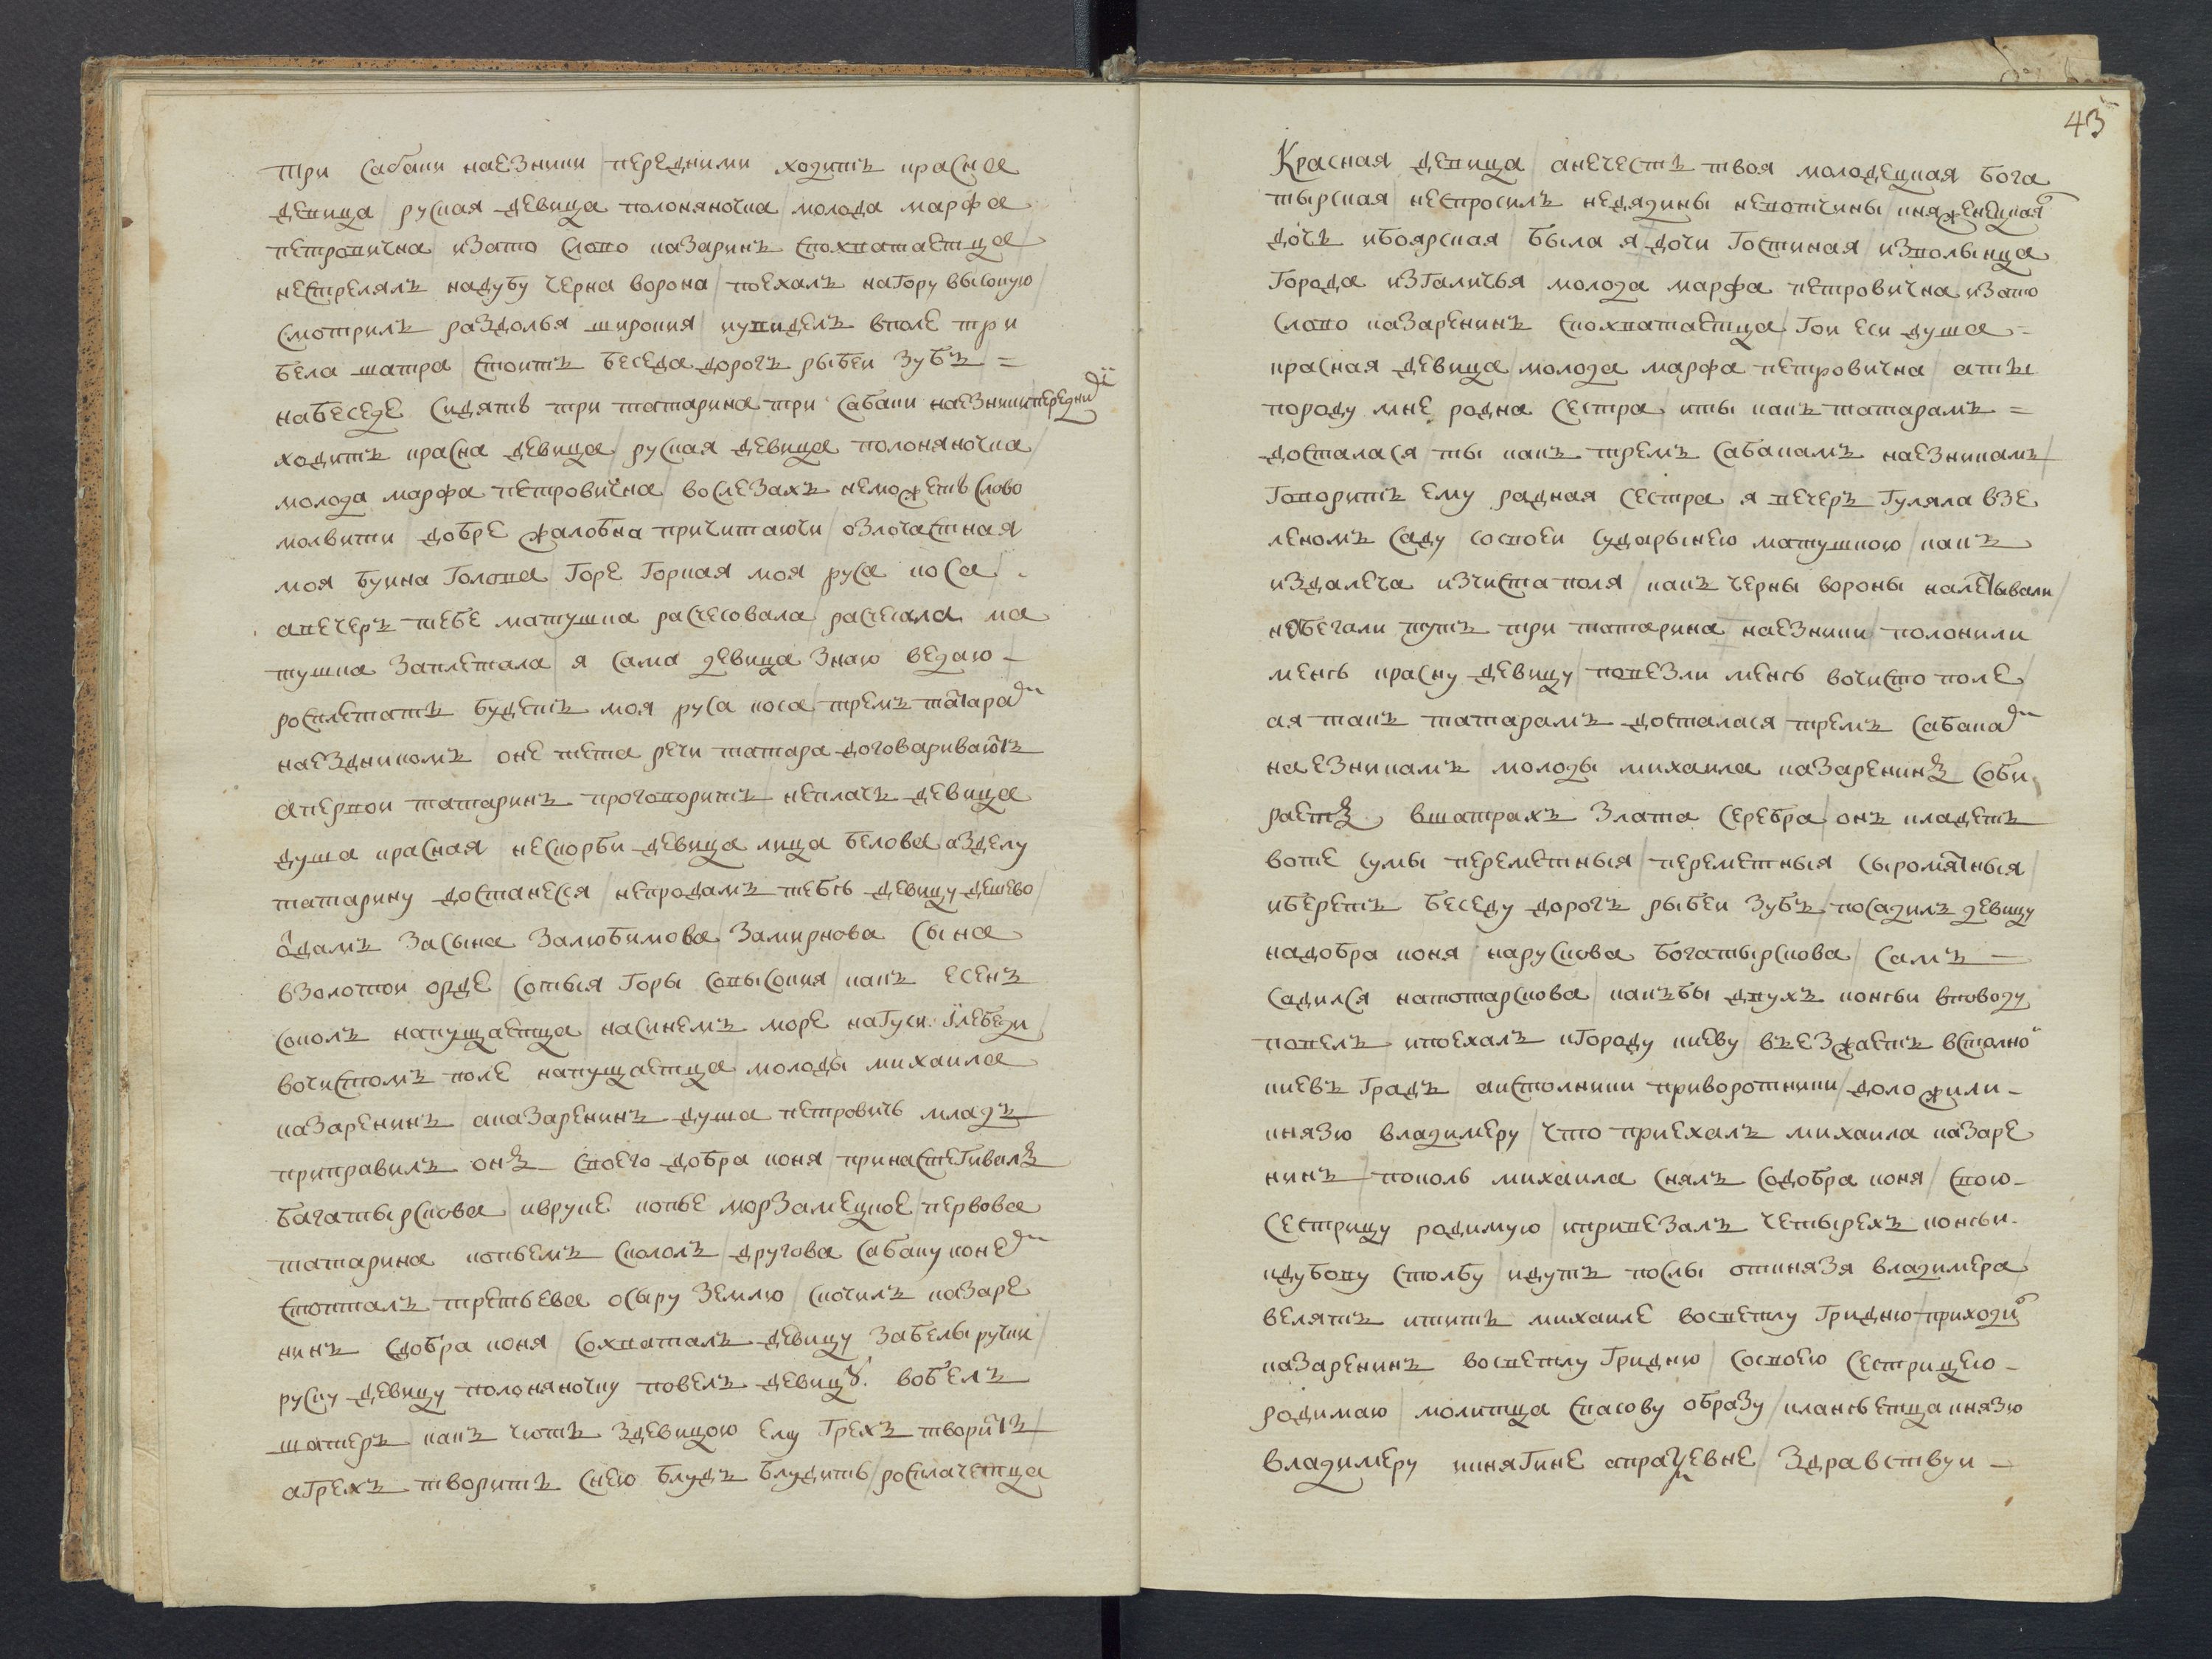 три сабаки наезники / передними ходитъ красна
девица / руская девица полоняночка / молода марфа
петровична / изато слово казаринъ спохватаетца /
нестрелялъ надубу черна ворона / поехалъ нагору высокую /
смотрилъ раздолья широкия / иувиделъ вполе три
бела шатра / стоитъ беседа дорогъ рыбеи зубъ =
набеседе сидятъ три татарина / три сабаки наезники / передними
ходитъ красна девица / руская девица полоняночка /
молода марфа петровична / вослезахъ неможетъ слово
молвити / добре жалобна причитаючи / озлочастная
моя буина голова / горе горкая моя руса коса /.
авечеръ тебе матушка расчесовала / расчесала ма
тушка заплетала / я сама девица знаю ведаю –
росплетать будетъ моя руса коса / тремъ татарам
наездникомъ / оне тета речи татара договариваютъ
апервои татаринъ проговоритъ / неплачь девица
душа красная / нескорби девица лица белова / азделу
татарину достанеся / непродамъ тебѣ девицу дешево /
отдамъ засына залюбимова / замирнова сына
взолотои орде / сотыя горы совысокия / какъ есенъ
соколъ напущаетца / насинемъ море нагуси ї лебеди /
вочистомъ поле напущаетца / молоды михаила
казаренинъ / аказаренинъ душа петровичь младъ /
приправилъ онъ своего добра коня / принастегивалъ
багатырскова / ивруке копье морзамецкое / первова
татарина копьемъ скололъ / другова сабаку конем
стопталъ / третьева осыру землю / скочилъ казаре
нинъ сдобра коня / сохваталъ девицу забелы ручки /
руску девицу полоняночку повелъ девицꙋ. вобелъ
шатеръ / какъ чють здевицою ему грехъ творить /
агрехъ творитъ снею блудъ блудить / росплачетца
43
Красная девица / анечесть твоя молодецкая бога
тырская / неспросилъ недядины невотчины / княженецкая
дочь ибоярская / была я дочи гостиная / изволынца
города изгаличья / молода марфа петровична / изато
слово казаренинъ спохватаетца / гои еси душа =
красная девица / молода марфа петровична / аты
породу мне родна сестра / иты какъ татарамъ =
досталася / ты какъ тремъ сабакамъ наезникамъ /
говоритъ ему радная сестра / я вечеръ гуляла взе
леномъ саду / сосвоеи сударынею матушкою / какъ
издалеча изчиста поля / какъ черны вороны налетывали /
набегали тутъ три татарина наезники / полонили
менѣ красну девицу / повезли менѣ вочисто поле /
ая такъ татарамъ досталася / тремъ сабакам
наезникамъ / молоды михаила казаренинъ соби
раетъ вшатрахъ злата серебра / онъ кладетъ
воте сумы переметныя / переметныя сыромятныя /
иберетъ беседу дорогъ рыбеи зубъ / посадилъ девицу
надобра коня / нарускова богатырскова / самъ –
садился натотарскова / какъбы двухъ конеи вповоду
повелъ / ипоехалъ кгороду киеву / въезжаетъ встолнои
киевъ градъ / аистолники приворотники / доложили –
князю владимеру / что приехалъ михаила казаре
нинъ / поколь михаила снялъ содобра коня / свою –
сестрицу родимую / ипривезалъ четырехъ конеи
кдубову столбу / идутъ послы откнязя владимера /
велятъ итить михаиле восветлу гридню / приходил
казаренинъ восветлу гридню / сосвоею сестрицею –
родимаю / молитца спасову образу / кланѣетца князю
владимеру / икнягине апраксевне / здравствуи –